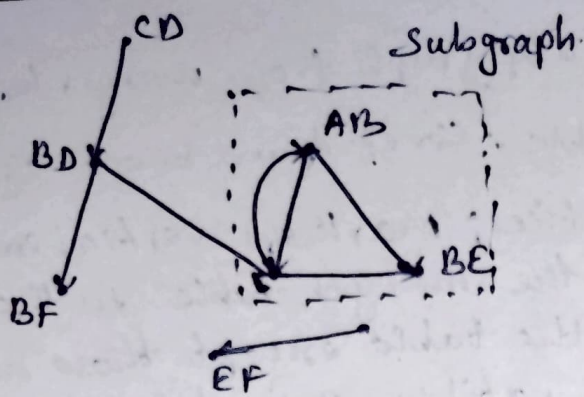 CD
Subgraph.
AB
BD
BE
BF
EF